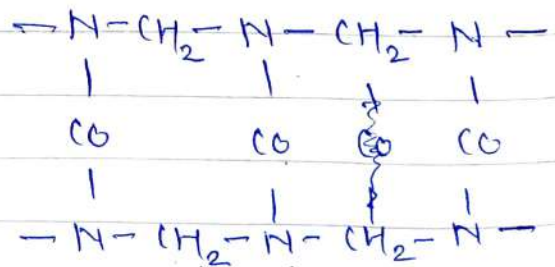 — N – CH₂ – N — CH₂ – N —
| | | |
CO CO CO
| | | |
— N – CH₂ – N – CH₂ – N —